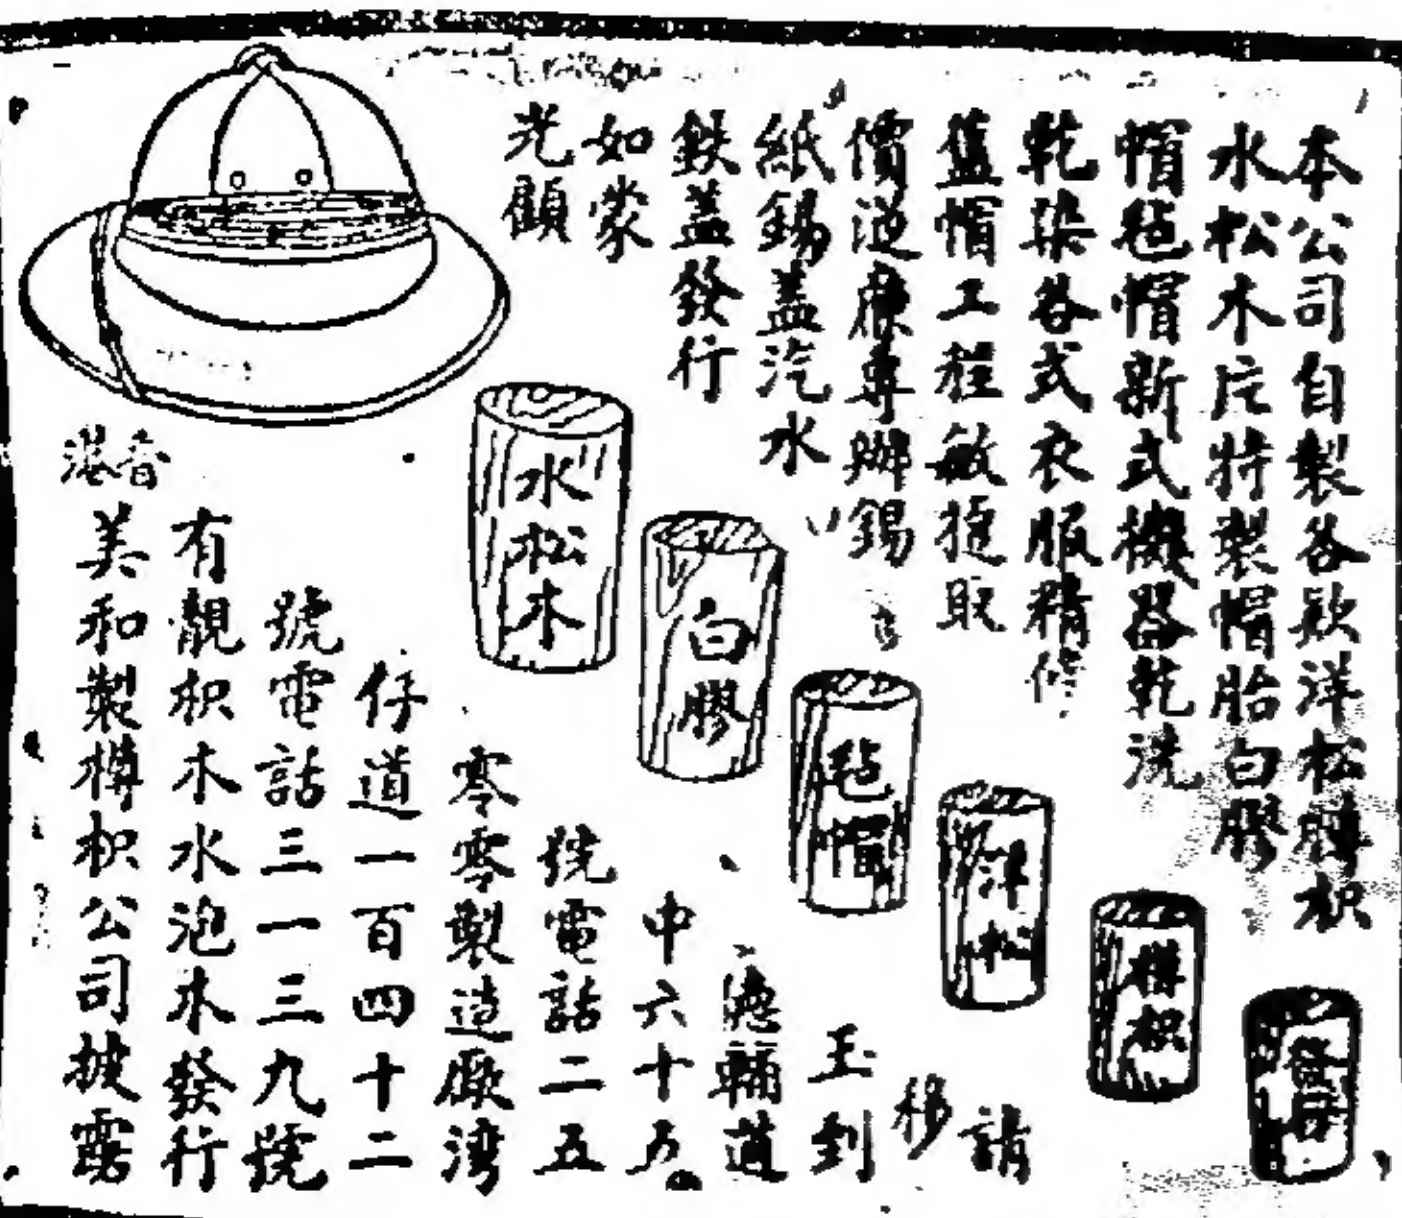 本公司自製各款洋松樽枳
水松木片特製帽胎白膠
帽毡帽新式機器乾洗
乾染各式衣服精修
舊帽工程敏捷取
價從廉專辦錫
紙錫蓋汽水
鉄蓋發行
如蒙
光顧
水松木
白膠
毡帽
洋松
樽枳
請
移
玉到
德輔道
中六十五
號電話二五
零零製造廠湾
仔道一百四十二
號電話三一三九號
有靚枳木水泡木發行
香港
美和製樽枳公司披露